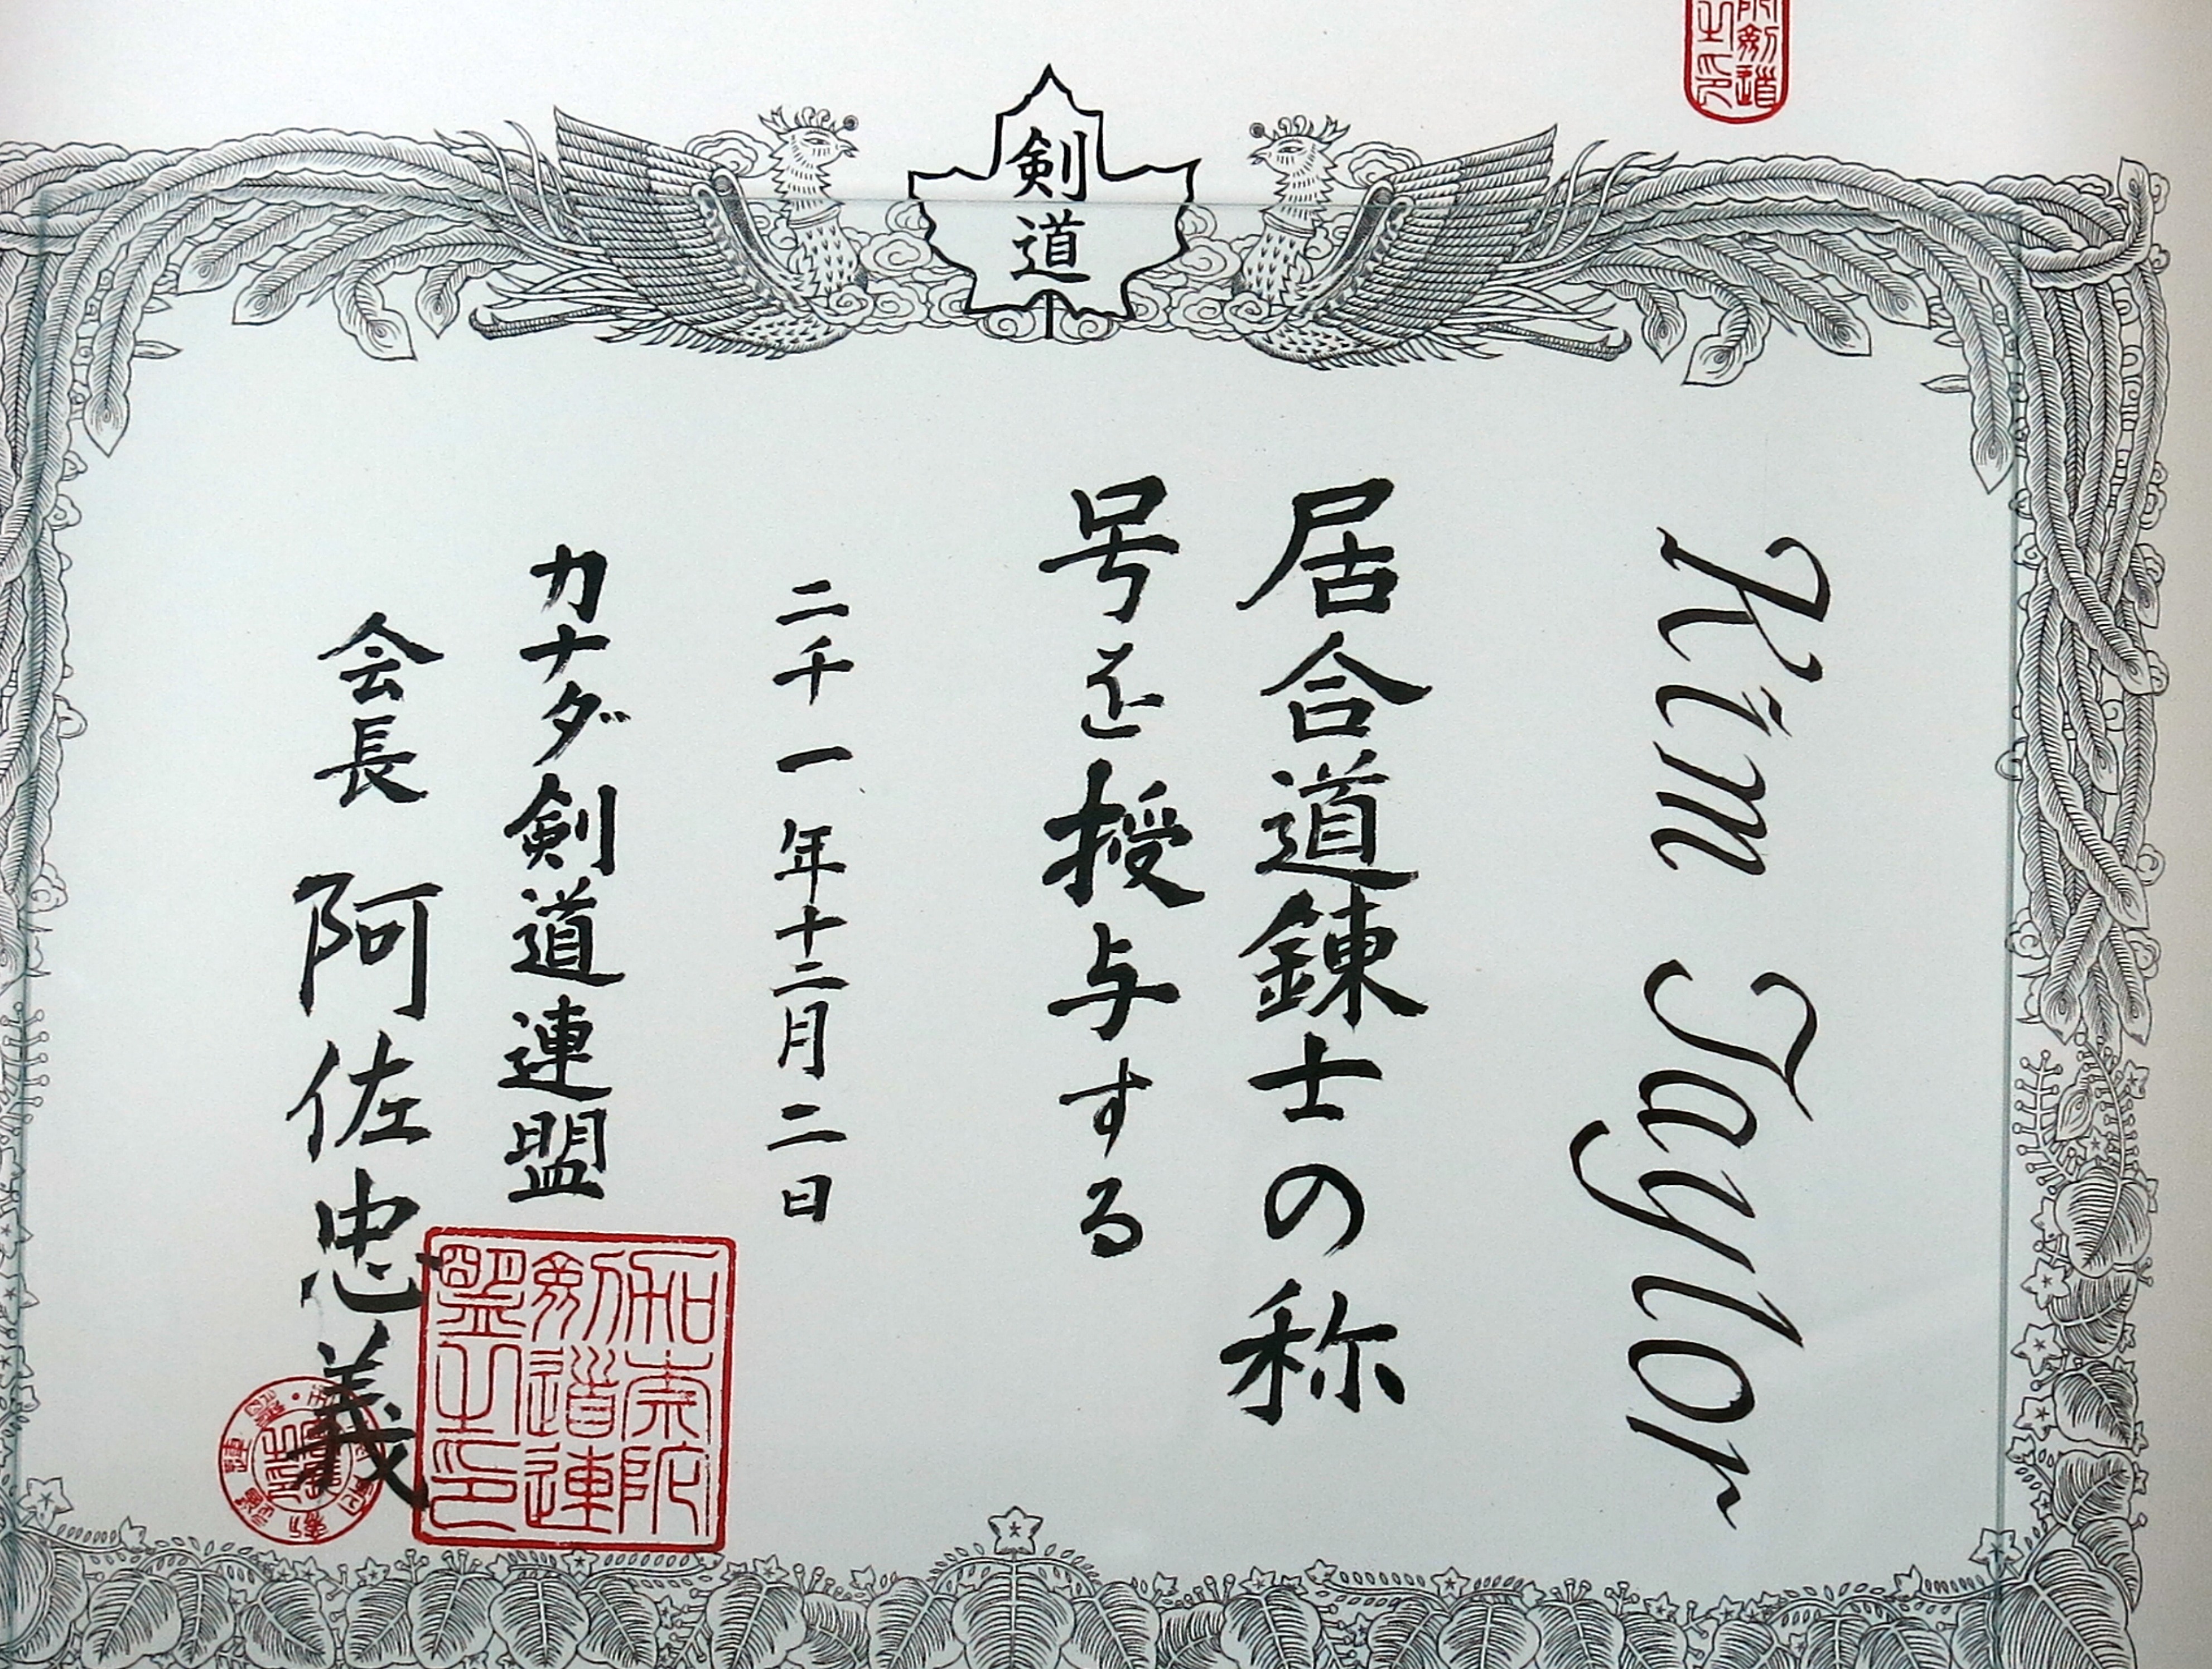 剣道
Kim Taylor
居合道錬士の称
号を授与する
二千一年十二月二日
カナダ剣道連盟
会長 阿佐忠義
加奈陀
剣道連
盟之印